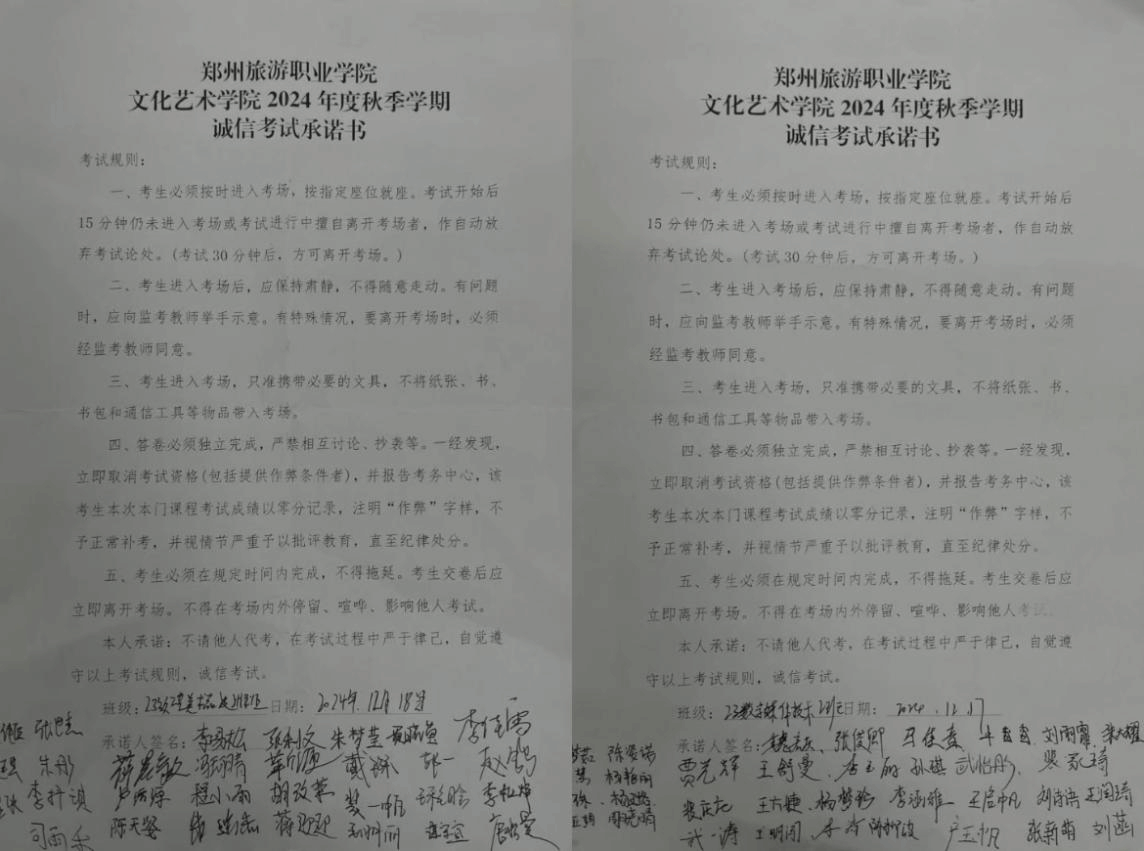 郑州旅游职业学院
文化艺术学院 2024 年度秋季学期
诚信考试承诺书
考试规则：
一、考生必须按时进入考场，按指定座位就座。考试开始后
15 分钟仍未进入考场或考试进行中擅自离开考场者，作自动放
弃考试论处。(考试 30 分钟后，方可离开考场。)
二、考生进入考场后，应保持肃静，不得随意走动。有问题
时，应向监考教师举手示意。有特殊情况，要离开考场时，必须
经监考教师同意。
三、考生进入考场，只准携带必要的文具，不将纸张、书、
书包和通信工具等物品带入考场。
四、答卷必须独立完成，严禁相互讨论、抄袭等。一经发现，
立即取消考试资格(包括提供作弊条件者)，并报告考务中心，该
考生本次本门课程考试成绩以零分记录，注明“作弊”字样，不
予正常补考，并视情节严重予以批评教育，直至纪律处分。
五、考生必须在规定时间内完成，不得拖延。考生交卷后应
立即离开考场。不得在考场内外停留、喧哗、影响他人考试。
本人承诺：不请他人代考，在考试过程中严于律己，自觉遵
守以上考试规则，诚信考试。
班级： 日期：2024年12月18日
承诺人签名： 朱梦莹
朱彤
程小雨 胡改苹
司雨禾 陈天姿
郑州旅游职业学院
文化艺术学院 2024 年度秋季学期
诚信考试承诺书
考试规则：
一、考生必须按时进入考场，按指定座位就座。考试开始后
15 分钟仍未进入考场或考试进行中擅自离开考场者，作自动放
弃考试论处。(考试 30 分钟后，方可离开考场。)
二、考生进入考场后，应保持肃静，不得随意走动。有问题
时，应向监考教师举手示意。有特殊情况，要离开考场时，必须
经监考教师同意。
三、考生进入考场，只准携带必要的文具，不将纸张、书、
书包和通信工具等物品带入考场。
四、答卷必须独立完成，严禁相互讨论、抄袭等。一经发现，
立即取消考试资格(包括提供作弊条件者)，并报告考务中心，该
考生本次本门课程考试成绩以零分记录，注明“作弊”字样，不
予正常补考，并视情节严重予以批评教育，直至纪律处分。
五、考生必须在规定时间内完成，不得拖延。考生交卷后应
立即离开考场。不得在考场内外停留、喧哗、影响他人考试。
本人承诺：不请他人代考，在考试过程中严于律己，自觉遵
守以上考试规则，诚信考试。
班级：23数字媒体技术 日期：2024.12.17
承诺人签名： 张俊卿 王佳鑫 刘雨霏
贾光辉 王舒曼 孙琪 武怡彤
杨梦珍 李涵雅
张新萌 刘菡